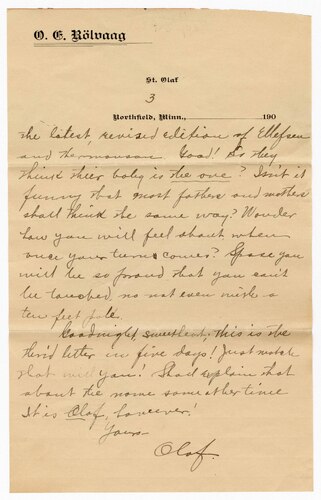 O. E. Rölvaag
St. Olaf
3
Northfield, Minn., 190
the latest, revised edition of Ellefsen
and thermanson. Good! So they
think thier baby is the one? Isn't it
funny that most fathers and mothers
shall think the same way? Wonder
how you will feel about when
once your turn comes? Spose you
will be so proud that you can't
be touched no not even with a
ten feet pole.
Goodnight sweetest, this is the
third letter in five days! Just match
that will you! Shall explain that
about the name some other time
It is Olaf, however!
Yours
Olaf.